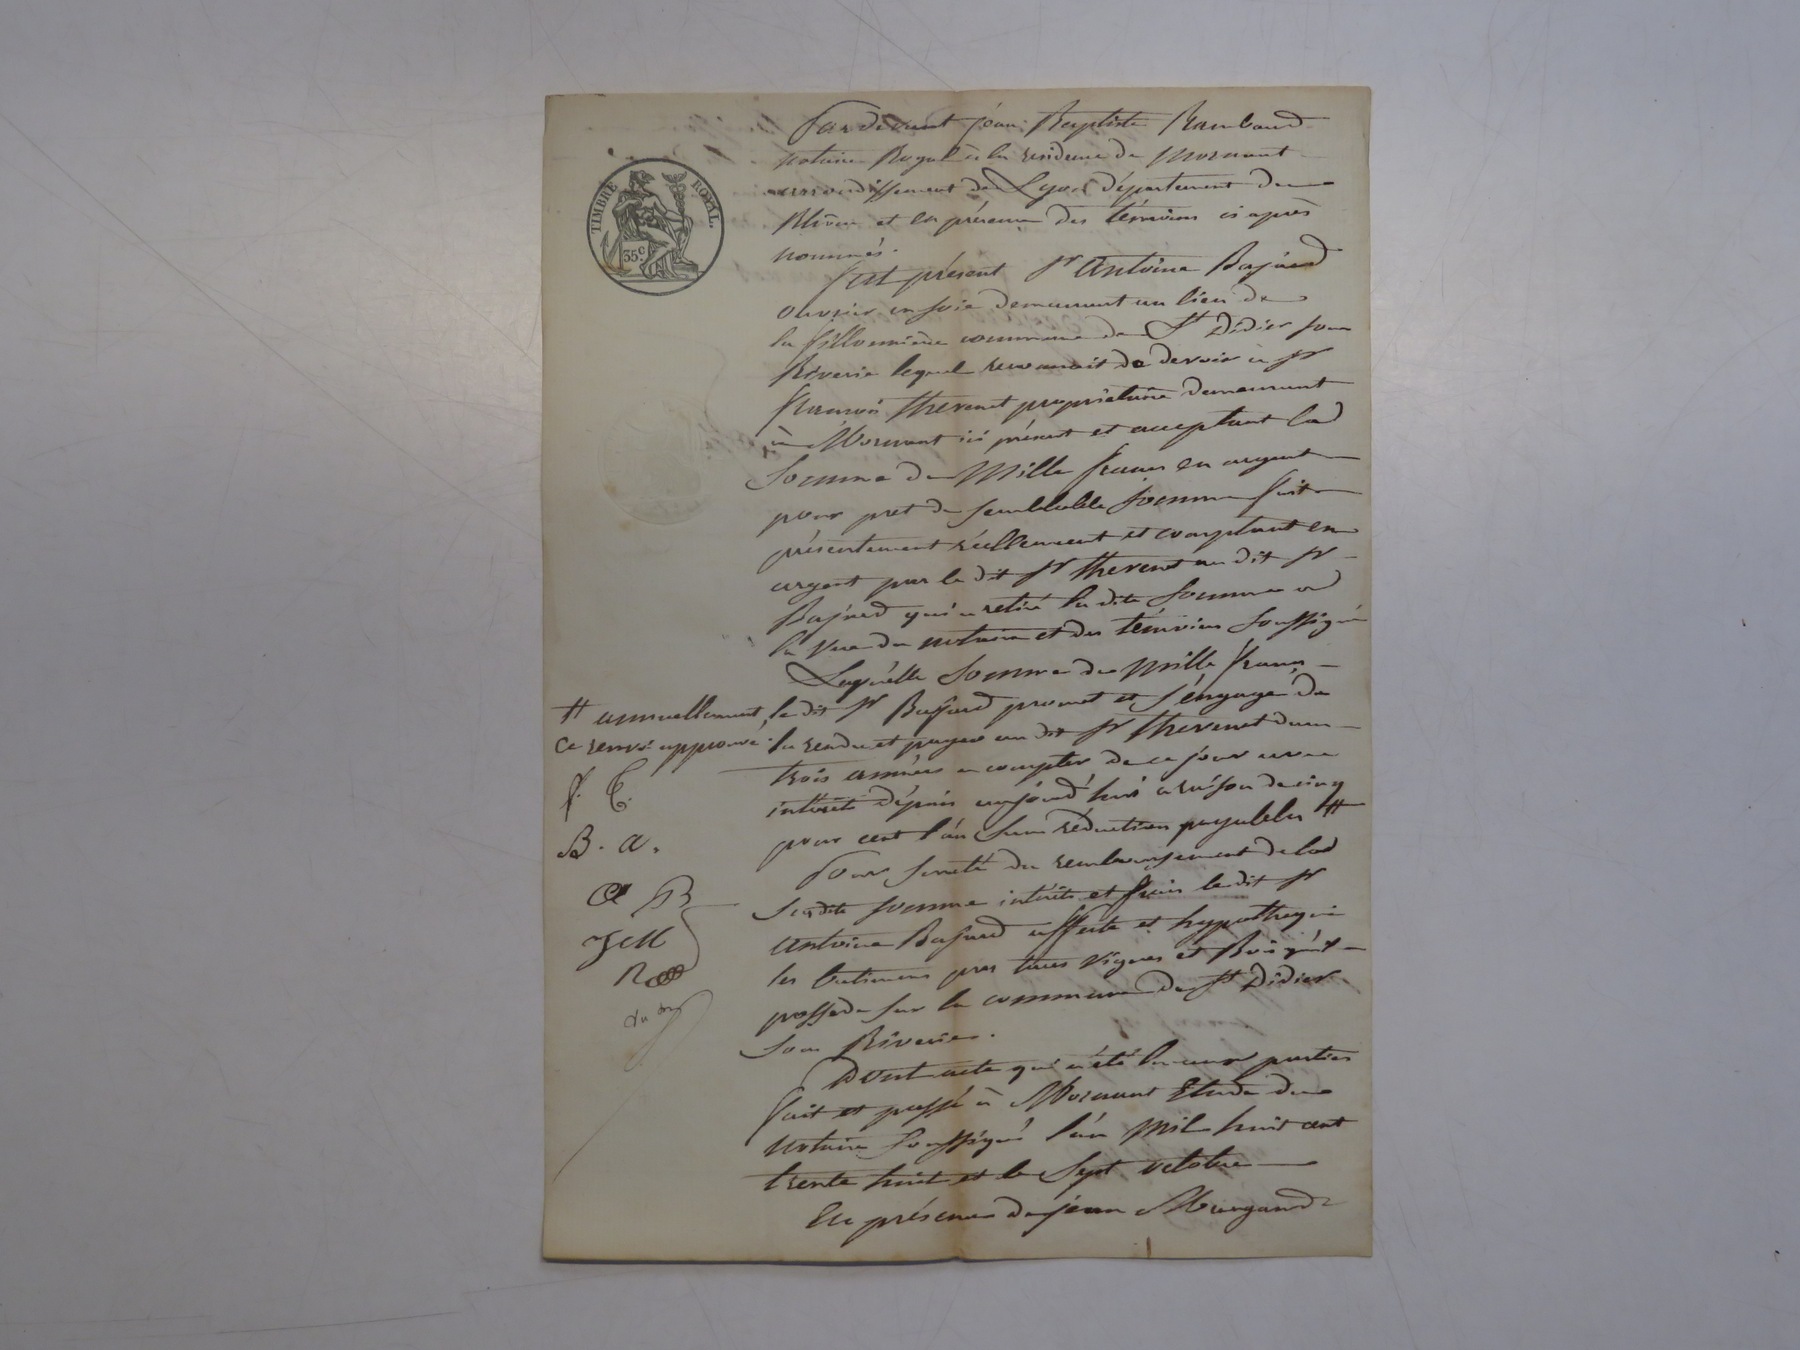 TIMBRE ROYAL
35c
Pardevant jéan Baptiste Rambaud
notaire Royal à la residence de Mornant
arrondissement de Lyon département du
Rhône et en présence des témoins ci après
nommés.
fut présent Sr Antoine Bajard
ouvrier en soie demeurant au lieu de
la commune de St Didier sous
Riverie lequel reconnait de devoir à Sr
françois thevenet propriétaire demeurant
à Mornant ici présent et acceptant la
Somme de Mille francs en argent
pour pret de semblable somme fait
présentement réellement et comptant en
argent par le dit Sr thevenet au dit Sr
Bajard qui a retiré la dite somme a
la vue du notaire et des témoins soussigné
Laquelle Somme de Mille francs
le dit Sr Bajard promet et s'engage de
la rendre et payer au dit Sr thevenet dans
trois années a compter de ce jour avec
intérêts dépuis aujourd'hui a raison de cinq
pour cent l'an sans réduction payables #
# annuellement,
ce renvoi approuvé.
f. t.
B. a.
a B
J M
R
Pour sureté du remboursement de la
susdite somme intérêts et frais le dit Sr
antoine Bajard affecte et hypothèque
les batimens prés terres vignes et Bois qu'il
possede sur la commune de St Didier
sous Riverie.
Dont acte qui a été lu aux parties
fait et passé à Mornant Etude du
notaire soussigné l'an Mil huit cent
trente huit et le Sept octobre
En présence de jean